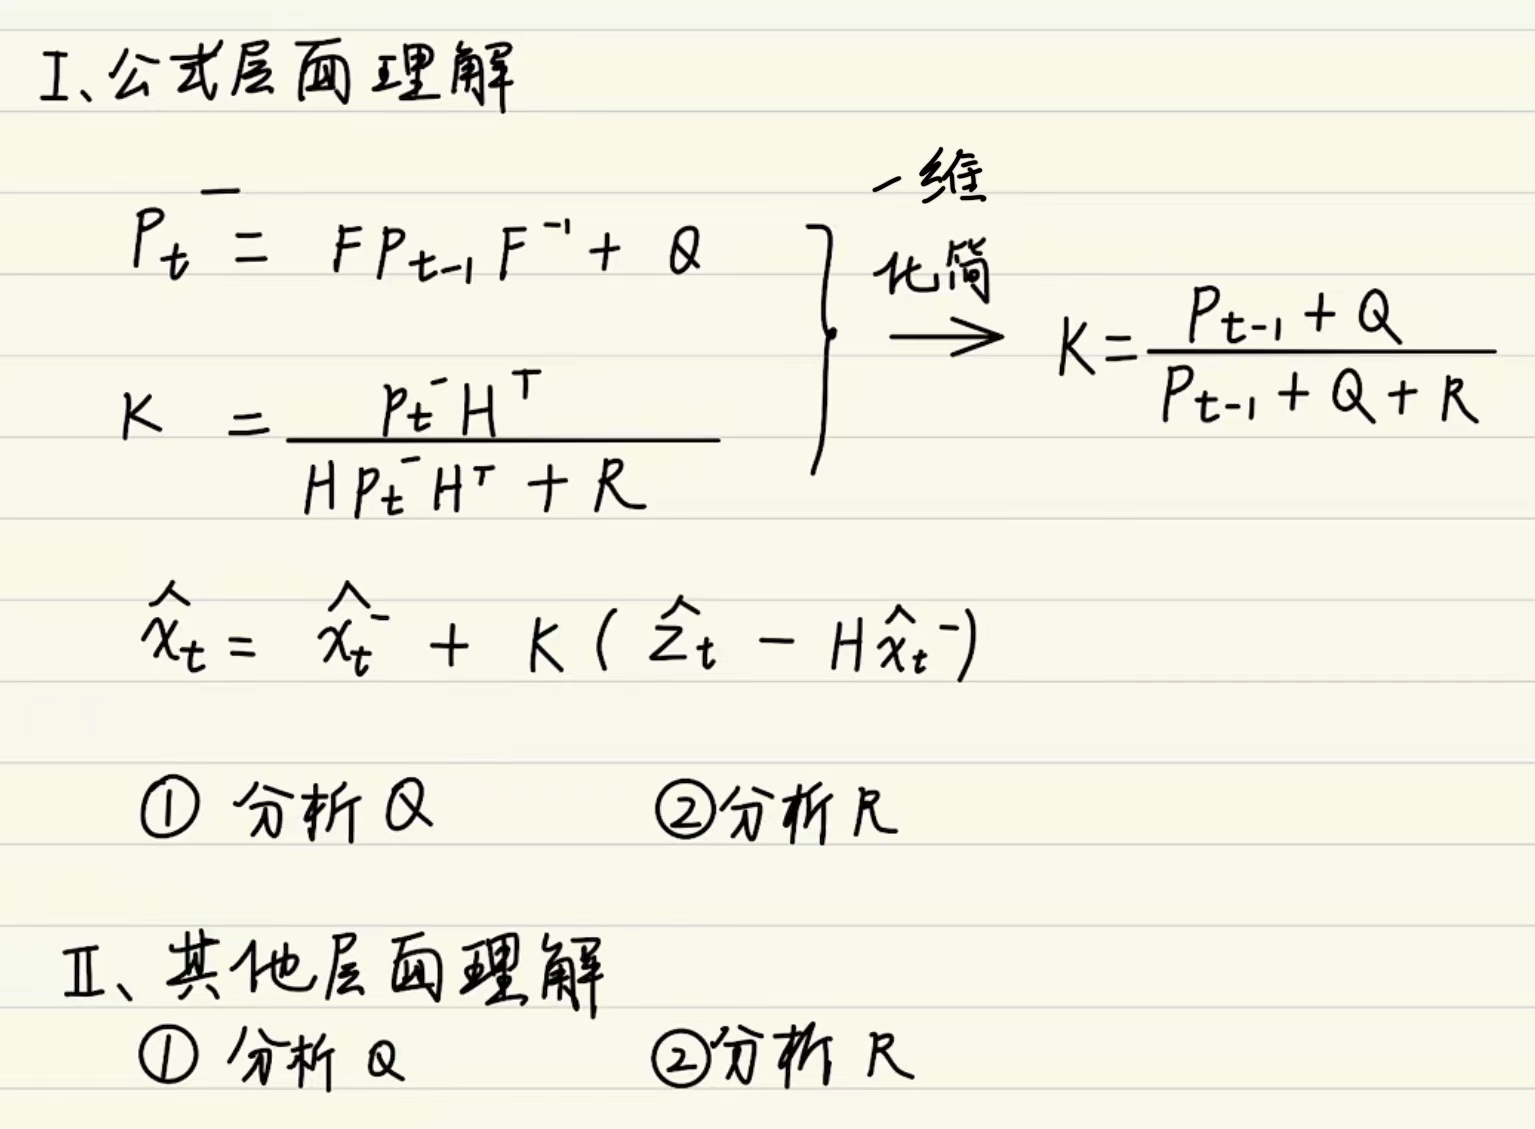 I、公式层面理解
P_t^- = F P_{t-1} F^{-1} + Q
K = \frac{P_t^- H^T}{H P_t^- H^T + R}
一维
化简
→ K = \frac{P_{t-1} + Q}{P_{t-1} + Q + R}
\hat{x}_t = \hat{x}_t^- + K ( \hat{z}_t - H \hat{x}_t^- )
① 分析 Q ② 分析 R
II、其他层面理解
① 分析 Q ② 分析 R